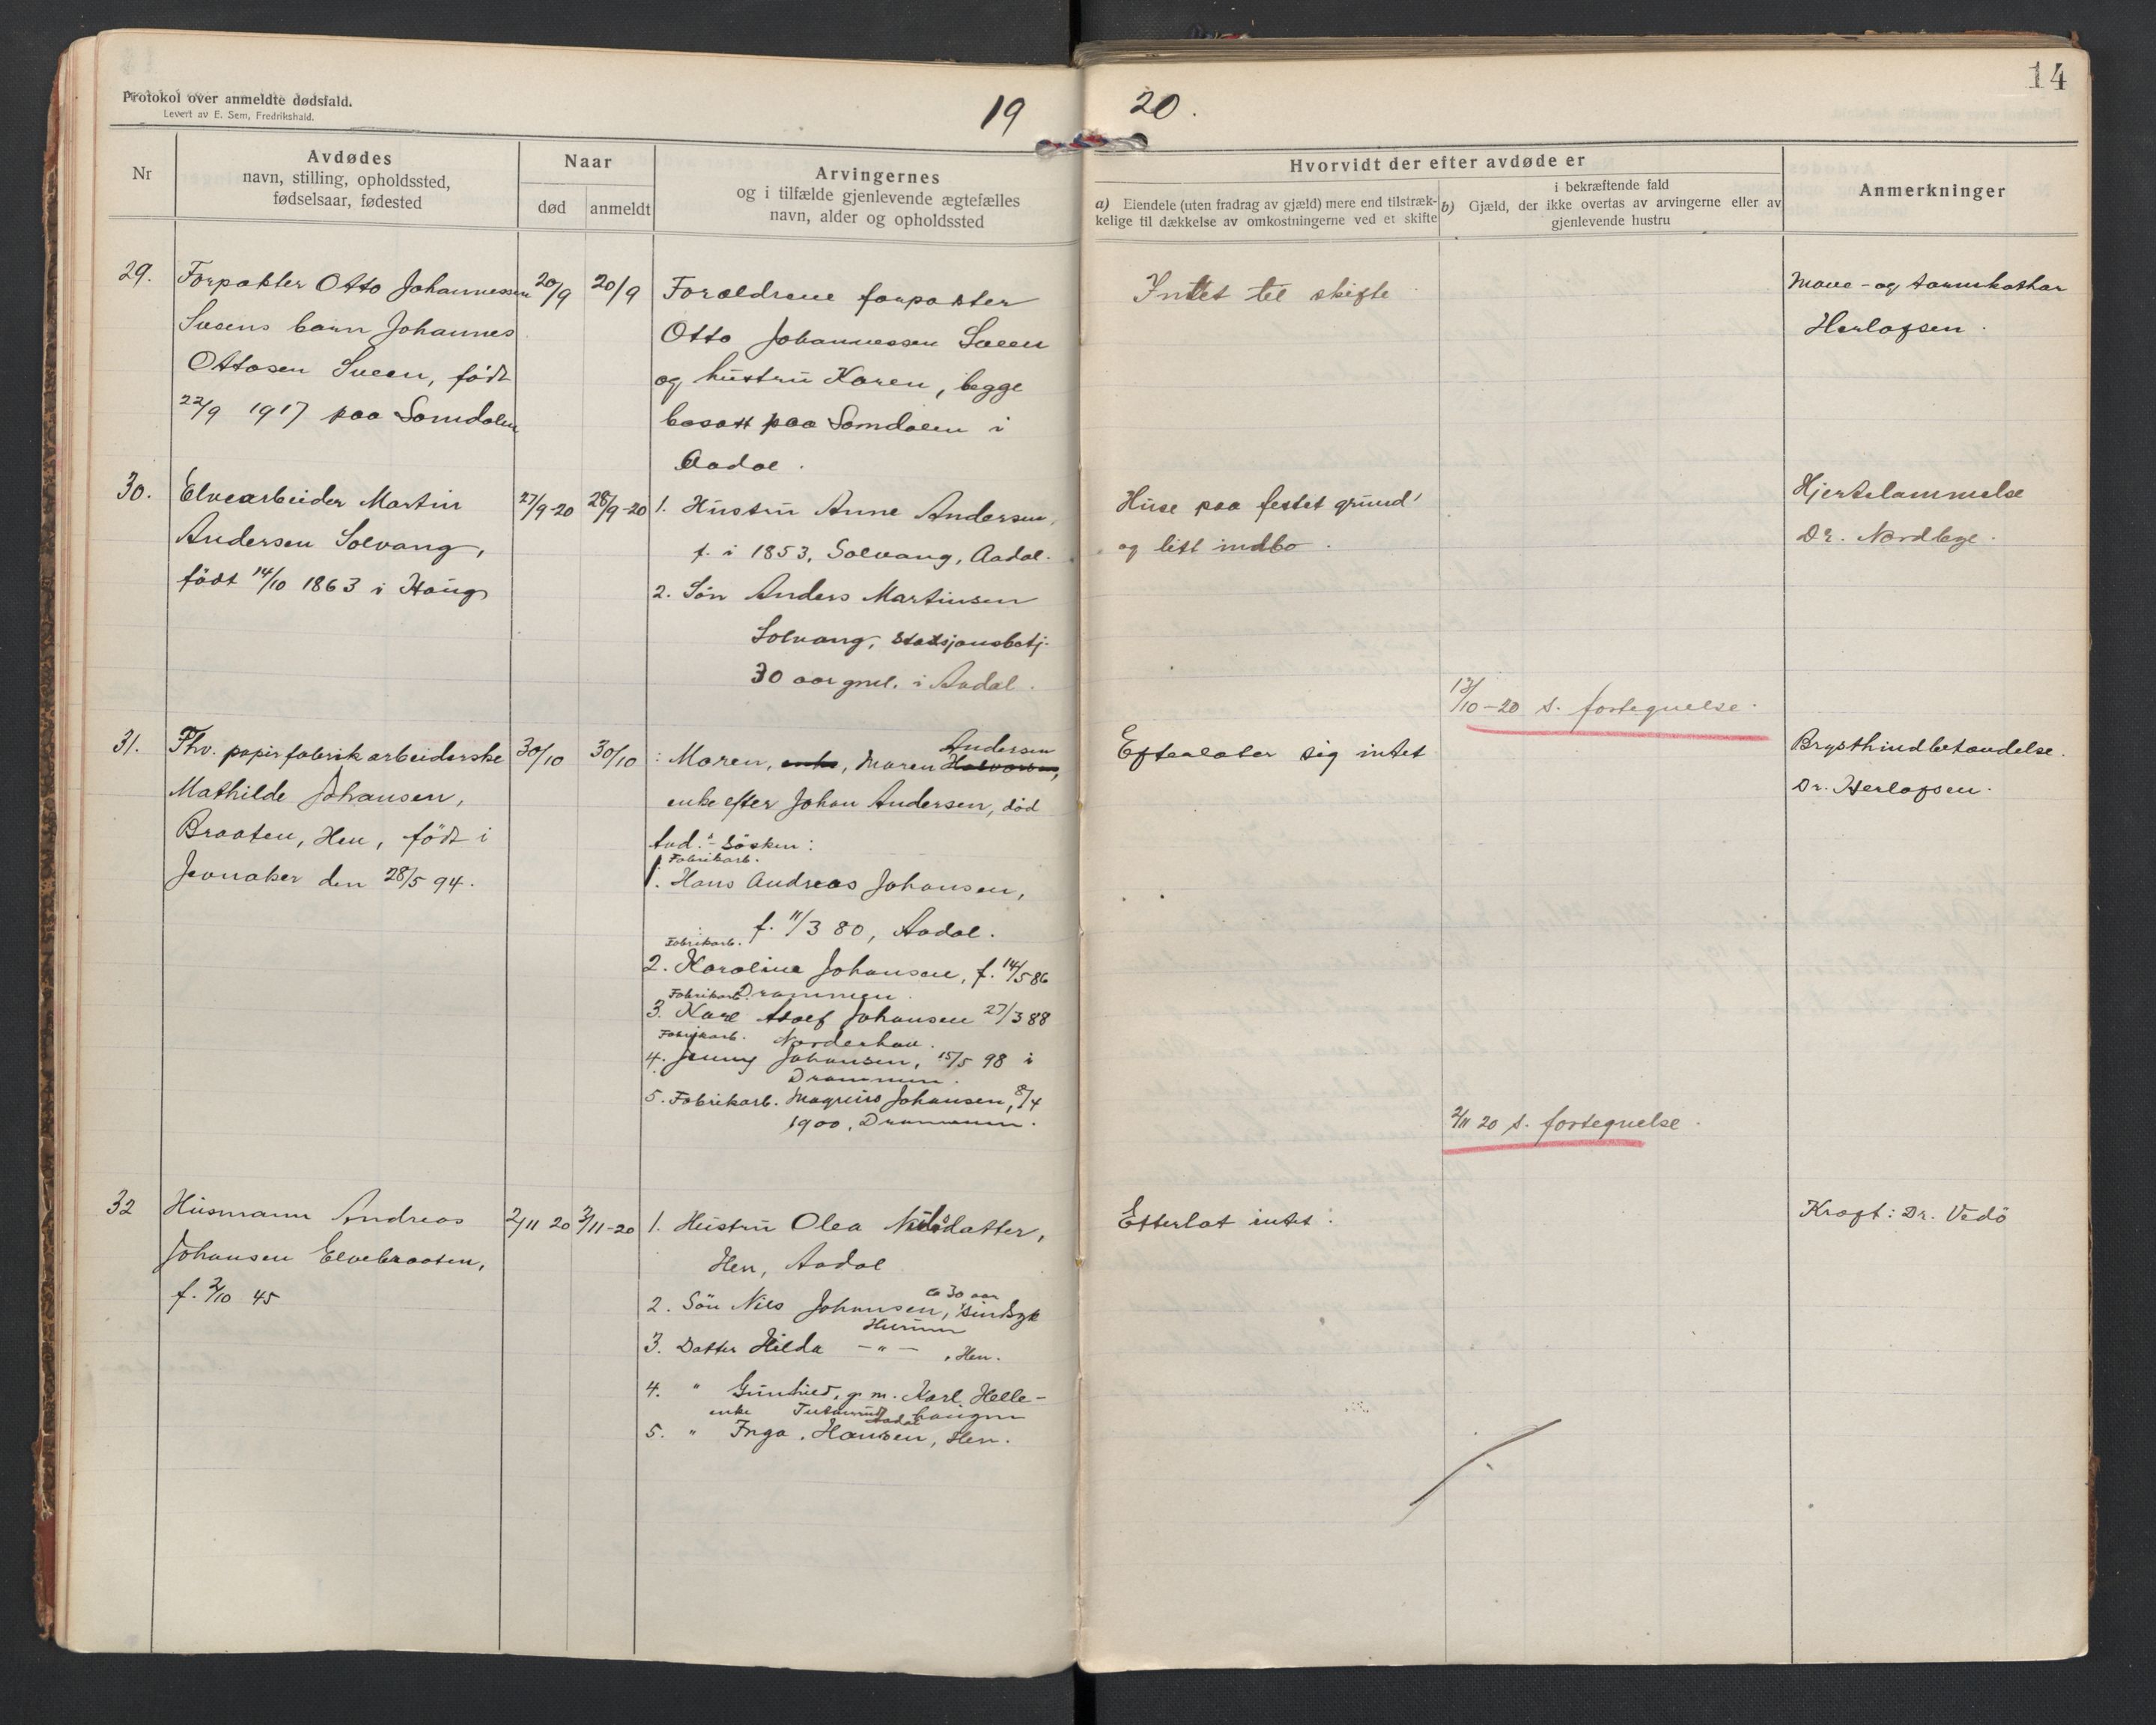 Protokol over anmeldte dødsfald.
Levert av E. Sem, Fredrikshald.
19 20.
14
Nr
Avdødes
navn, stilling, opholdssted,
fødselsaar, fødested
Naar
død
anmeldt
Arvingernes
og i tilfælde gjenlevende ægtefælles
navn, alder og opholdssted
Hvorvidt der efter avdøde er
a) Eiendele (uten fradrag av gjæld) mere end tilstræk-
kelige til dækkelse av omkostningerne ved et skifte
i bekræftende fald
b) Gjæld, der ikke overtas av arvingerne eller av
gjenlevende hustru
Anmerkninger
29.
Forpakter Otto Johannessen
Sveens barn Johannes
Ottosen Sveen, født
22/9 1917 paa Somdalen
20/9
20/9
Forældrene forpakter
Otto Johannessen Sveen
og hustru Karen, begge
bosatt paa Somdalen i
Aadal.
Intet til skifte
Mave- og tarmkathar
Herlofsen.
30.
Elvearbeider Martin
Andersen Solvang,
født 14/10 1863 i Haug
27/9-20
28/9-20
1. Hustru Anne Andersen,
f. i 1853, Solvang, Aadal.
2. Søn Anders Martinsen
Solvang, stasjonsbetj.
30 aar gml. i Aadal.
Huse paa festet grund
og litt indbo.
13/10-20 s. fortegnelse.
Hjertelammelse
Dr. Nordbye.
31.
Fhv. papirfabrikarbeiderske
Mathilde Johansen,
Braaten, Hen, født i
Jevnaker den 28/5 94.
30/10
30/10
Andersen
: Moren, enke, Maren Halvorsen,
enke efter Johan Andersen, död
Avd.s sösken:
Fabrikarb.
1. Hans Andreas Johansen,
f. 11/3 80, Aadal.
Fabrikarb.
2. Karoline Johansen, f. 14/5 86
Fabrikarb. Drammen.
3. Karl Adolf Johansen 27/3 88
Fabrikarb. Norderhov.
4. Jenny Johansen, 15/5 98 i
Drammen.
5. Fabrikarb. Magnus Johansen, 8/4
1900, Drammen.
Efterlater sig intet
2/11 20 s. fortegnelse.
Brysthindbetændelse.
Dr. Herlofsen.
32
Husmann Andreas
Johansen Elvebraaten,
f. 2/10 45
2/11 20
3/11-20
1. Hustru Olea Nilsdatter,
Hen, Aadal
ca 30 aar
2. Sön Nils Johansen, sindsyk
Hurum
3. Datter Hilda -"- , Hen.
4. " Gunhild, g. m. Karl Helle-
enke haugen
Aadal
5. " Inga Hansen, Hen.
Efterlot intet.
Kræft: Dr. Vedö